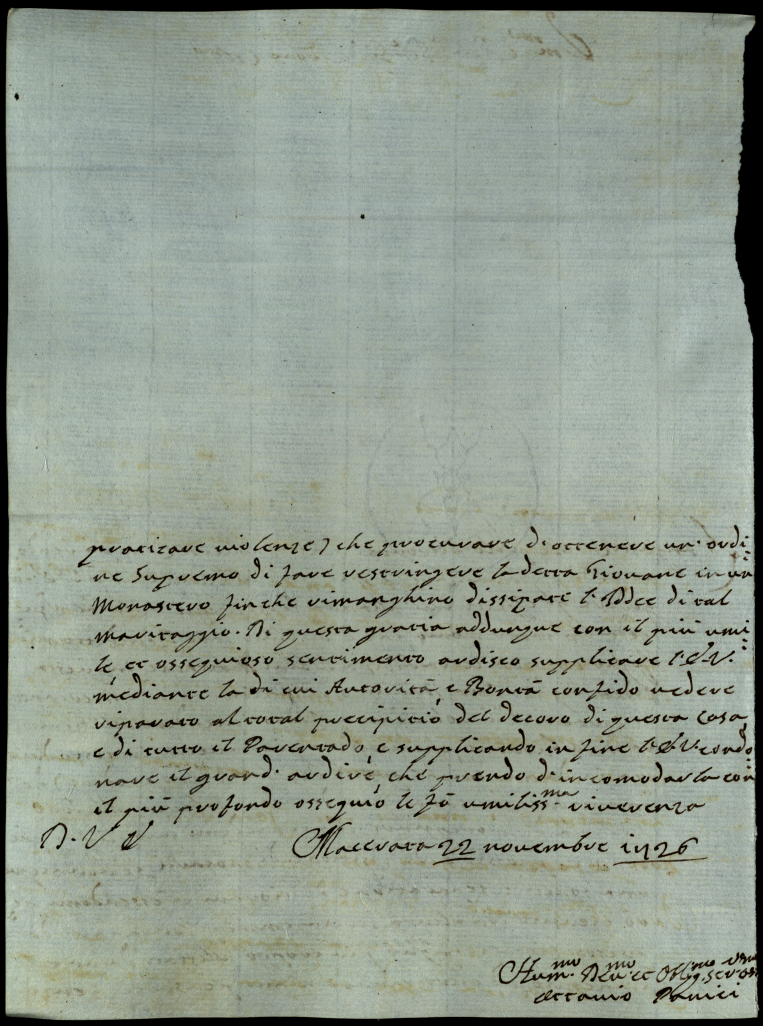 praticare violenze) che procurare di ottenere un' ordi:
ne supremo di fare restringere la detta Giovane in un
Monastero finche rimanghino dissipati l' Idee di tal
maritaggio. Di questa gratia addunque con il più umi:
le et ossequioso sentimento ardisco supplicare l' E. V.
mediante la di cui Autorità, e Bontà confido vedere
riparato al total precipitio del decoro di questa Casa,
e di tutto il Parentado, e supplicando in fine l' E. V. condo
nare il grand' ardire, che prendo d' incomodarla con
il più profondo ossequio le fò umiliss.ma riverenza
D. V. E.
Macerata 22 novembre 1726
Hum.mo Dev.mo et Obblig.mo Ser.
Ottavio